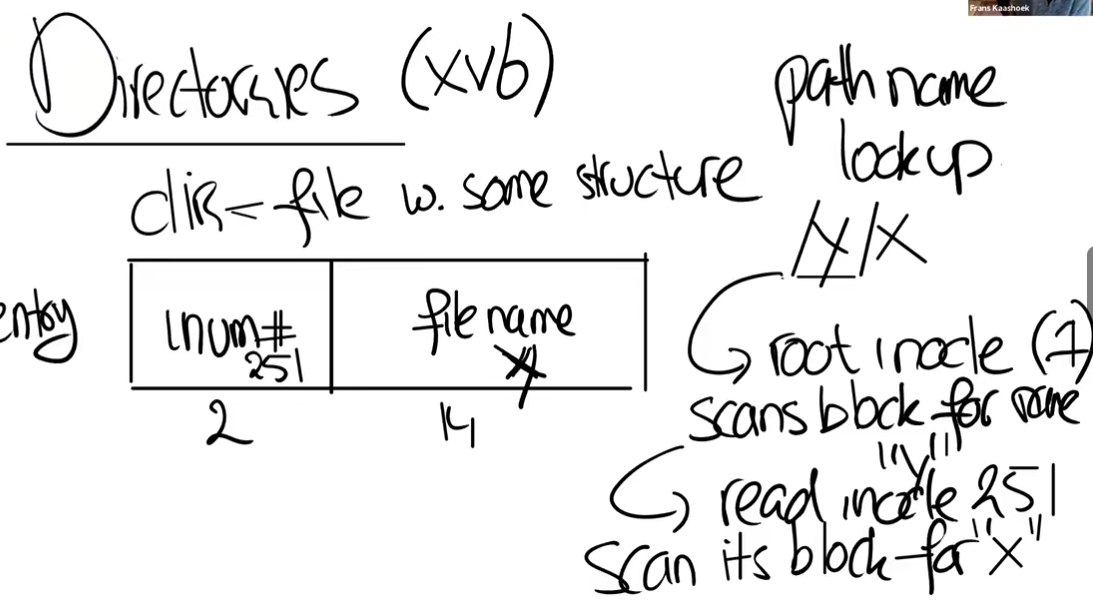 Frans Kaashoek
Directories (xv6)
dir = file w. some structure
entry
inum#
251
filename
2
14
pathname
lookup
/y/x
root inode (1)
scans block for name
"y"
read inode 251
scan its block for "x"